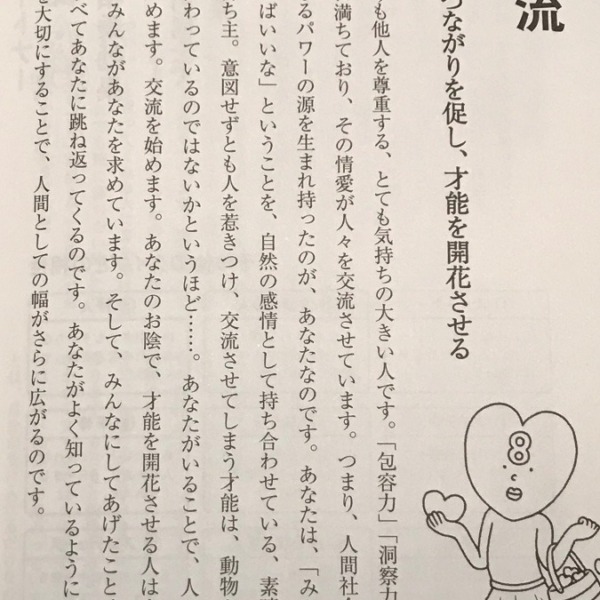 流
つながりを促し、才能を開花させる
も他人を尊重する、とても気持ちの大きい人です。「包容力」「洞察力
満ちており、その情愛が人々を交流させています。つまり、人間社会
るパワーの源を生まれ持ったのが、あなたなのです。あなたは、「み
ばいいな」ということを、自然の感情として持ち合わせている、素晴
ち主。意図せずとも人を惹きつけ、交流させてしまう才能は、動物
わっているのではないかというほど……。あなたがいることで、人
めます。交流を始めます。あなたのお陰で、才能を開花する人は
みんながあなたを求めています。そして、みんなにしてあげたこと
べてあなたに跳ね返ってくるのです。あなたがよく知っているように
を大切にすることで、人間としての幅がさらに広がるのです。
8